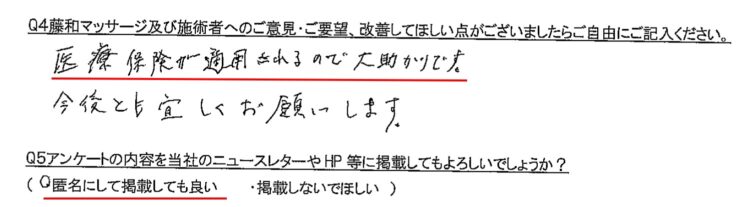 Q4藤和マッサージ及び施術者へのご意見・ご要望、改善してほしい点がございましたらご自由にご記入ください。
医療保険が適用されるので大助かりです。
今後とも宜しくお願いします。
Q5アンケートの内容を当社のニュースレターやHP等に掲載してもよろしいでしょうか?
( ○匿名にして掲載しても良い ・掲載しないでほしい )